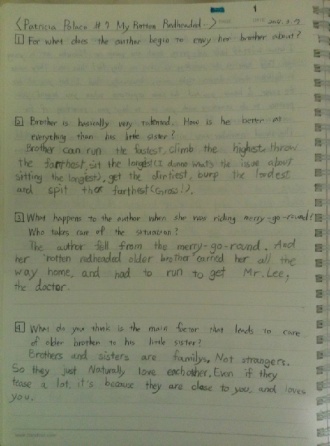 1
<Patricia Polacco #9 My Rotten Redheaded..>
1 For what does the author begin to envy her brother about?
2 Brother is basically very talented. How is he better at
everything than his little sister?
Brother can run the fastest, climb the highest, throw
the farthest, sit the longest(I dunno whats the issue about
sitting the longest), get the dirtiest, burp the loudest
and spit the farthest(Gross!).
3 What happens to the author when she was riding merry-go-round?
Who takes care of the situation?
The author fell from the merry-go-round. And
her rotten redheaded older brother carried her all the
way home, and had to run to get Mr. Lee,
the doctor.
4 What do you think is the main factor that leads to care
of older brother to his little sister?
Brothers and sisters are family. Not strangers.
So they just Naturally love eachother. Even if they
tease a lot, it's because they are close to you, and loves
you.